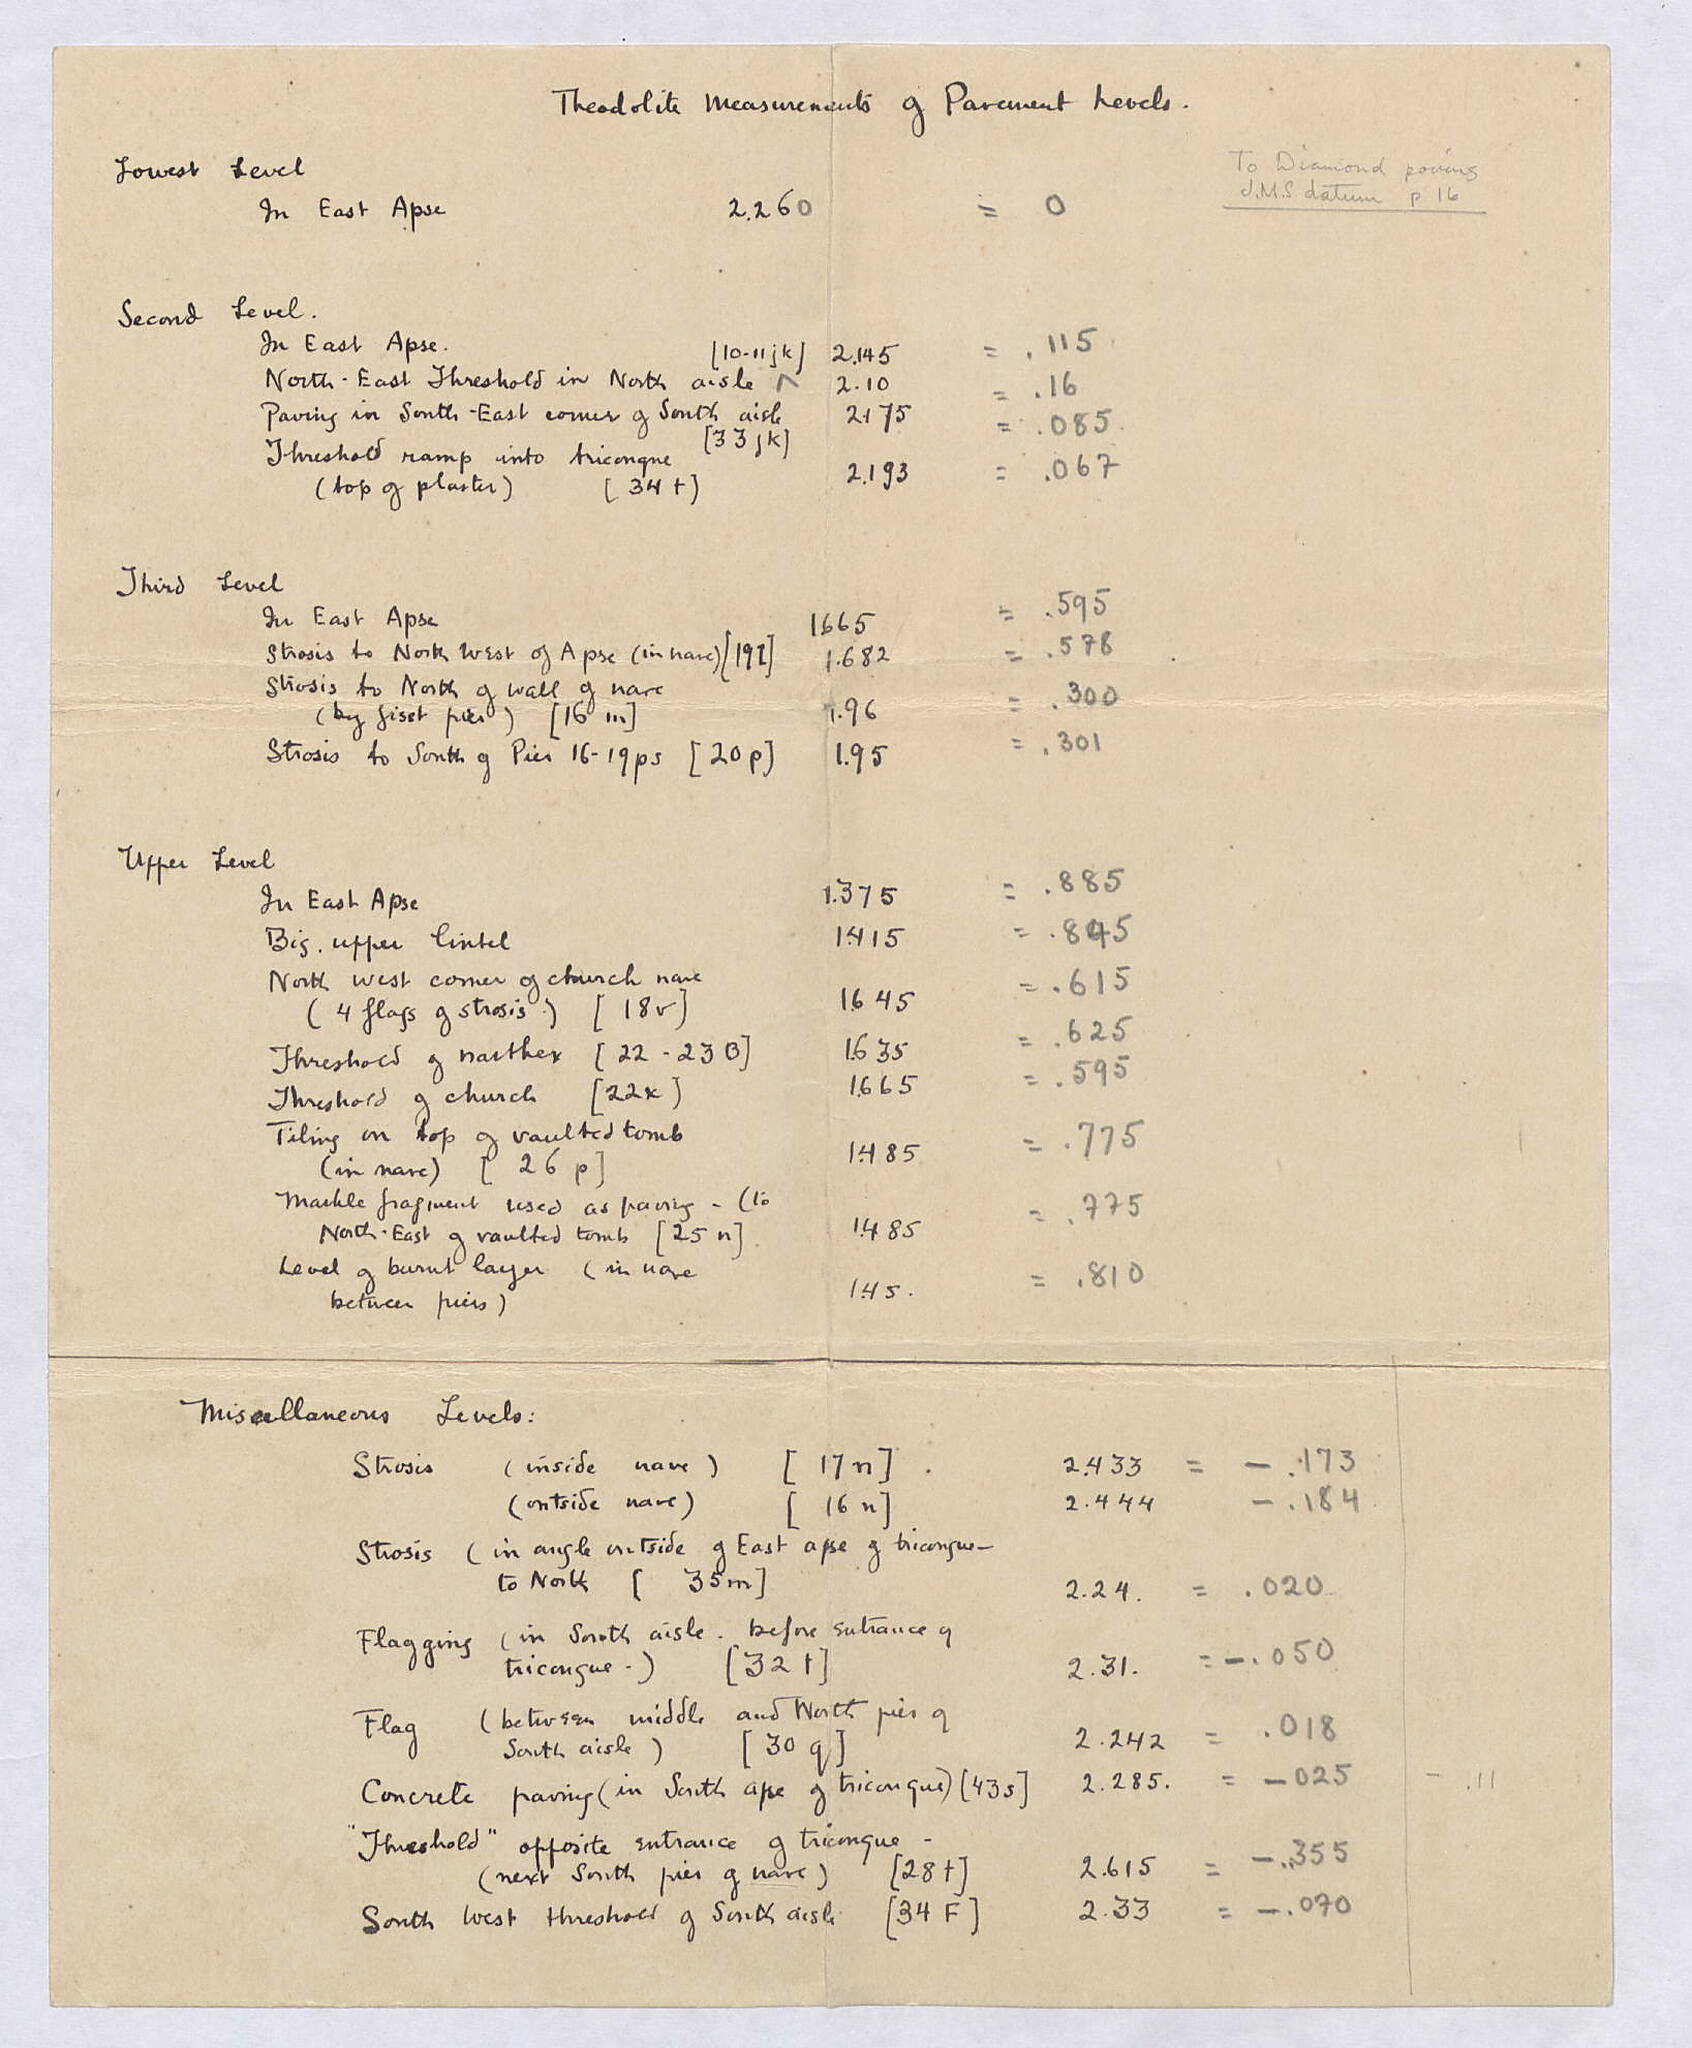 Theodolite Measurements of Pavement Levels.
To Diamond paving
J.M.S datum p 16
Lowest Level
In East Apse 2.260 = 0
Second Level.
In East Apse. 2.145 = .115
North-East Threshold in North aisle ^ [10-11jk] 2.10 = .16
Paving in South-East corner of South aisle 2.175 = .085
[33jk]
Threshold ramp into triconque
(top of plaster) [34 t] 2.193 = .067
Third Level
In East Apse 1.665 = .595
Strosis to North West of Apse (in nave) [19l] 1.682 = .578
Strosis to North of wall of nave
(by first pier) [16 m] 1.96 = .300
Strosis to South of Pier 16-19ps [20p] 1.95 = .301
Upper Level
In East Apse 1.375 = .885
Big. upper lintel 1.415 = .845
North west corner of church nave
(4 flags of strosis.) [18v] 1.645 = .615
Threshold of narthex [22-23 B] 1.635 = .625
Threshold of church [22x] 1.665 = .595
Tiling on top of vaulted tomb
(in nave) [26 p] 1.485 = .775
Marble fragment used as paving - (to
North-East of vaulted tomb [25 n] 1.485 = .775
Level of burnt layer (in nave
between piers) 1.45. = .810
Miscellaneous Levels:
Strosis (inside nave) [17n]. 2.433 = -.173
(outside nave) [16n] 2.444 -.184
Strosis (in angle outside of East apse of triconque-
to North [35m] 2.24. = .020
Flagging (in South aisle. before entrance of
triconque-) [32 t] 2.31. = -.050
Flag (between middle and North pier of
South aisle) [30 q] 2.242 = .018
Concrete paving (in South apse of triconque) [43s] 2.285. = -025 - .11
"Threshold" opposite entrance of triconque -
(next South pier of nave) [28t] 2.615 = -.355
South West threshold of South aisle [34 F] 2.33 = -.070